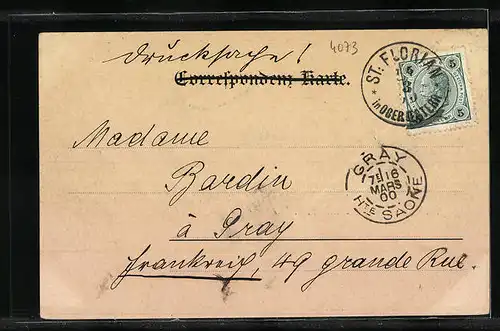 Drucksache!
4073
Correspondenz-Karte.
ST. FLORIAN
in OBER ÖSTERR.
5 5
Madame
Bardin
GRAY
7E 16
MARS
00
HTE SAONE
à Gray
Frankreich, 49 grande Rue.